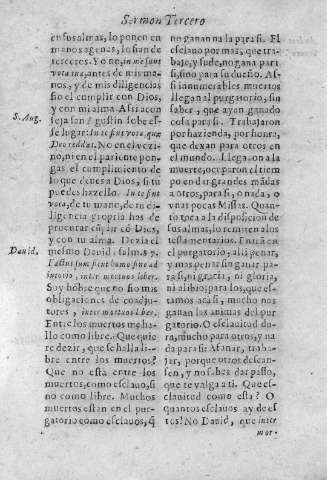 Sermon Tercero
en sus almas, lo ponen en
manos agenas, lo fian de
terceros. Yo no, in me sunt
vota tua, antes de mis ma-
nos, y de mis diligencias
fio el cumplir con Dios,
y con mi alma Assi acon
S. Aug.
seja san
gustin sobe es-
se lugar: In te sint vota, quæ
Deo reddas. No en el vezi-
no, ni en el pariente pon-
gas el cumplimiento de
lo que deues a Dios, si tu
puedes hazello. In te sint
vota, de tu mano, de tu di-
ligencia propria has de
procurar cũplir cõ Dios,
y con tu alma. Dezia el
David.
mesmo David: salm. 87.
Factus sum sicut homo sine ad
iutorio, inter mortuos liber.
Soy hõbre que no fio mis
obligaciones de coadju-
tores, inter mortuos liber.
Entre los muertos me ha-
llo como libre. Que quie
re dezir, que se halla li-
bre entre los muertos?
Que no està entre los
muertos, como esclauo, si
no como libre. Muchos
muertos estàn en el pur-
gatorio como esclauos, q̃
no ganan na la para si. El
esclauo por mas, que tra-
baje, y sude, no gana para
si, sino para su dueño. As-
si innumerables muertos
llegan al purgatorio, sin
saber, que ayan ganado
cosa para si. Trabajaron
por hazienda, por honra,
que dexan para otros en
el mundo. Llega con a la
muerte, ocuparon el tiem
po en ordir grandes mãdas
a otros, para si, o nada, o
vnas pocas Missas. Quan-
to toca a la disposicion de
sus almas, lo remiten a los
testamentarios. Entrã en
el purgatorio, alli penar,
y mas penar sin ganar pa-
ra si, ni gracia, ni gloria,
ni alibio; para los, que es-
tamos acà si, mucho nos
ganan las animas del pur
gatorio. O esclauitud du-
ra, mucho para otros, y na
da para si! Afanar, traba-
jar, porque otros descan-
sen, y no sabes dar passo,
que te valga a ti. Que es-
clauitud como esta? O
quantos esclauos ay de es
tos! No David, que inter
mor-